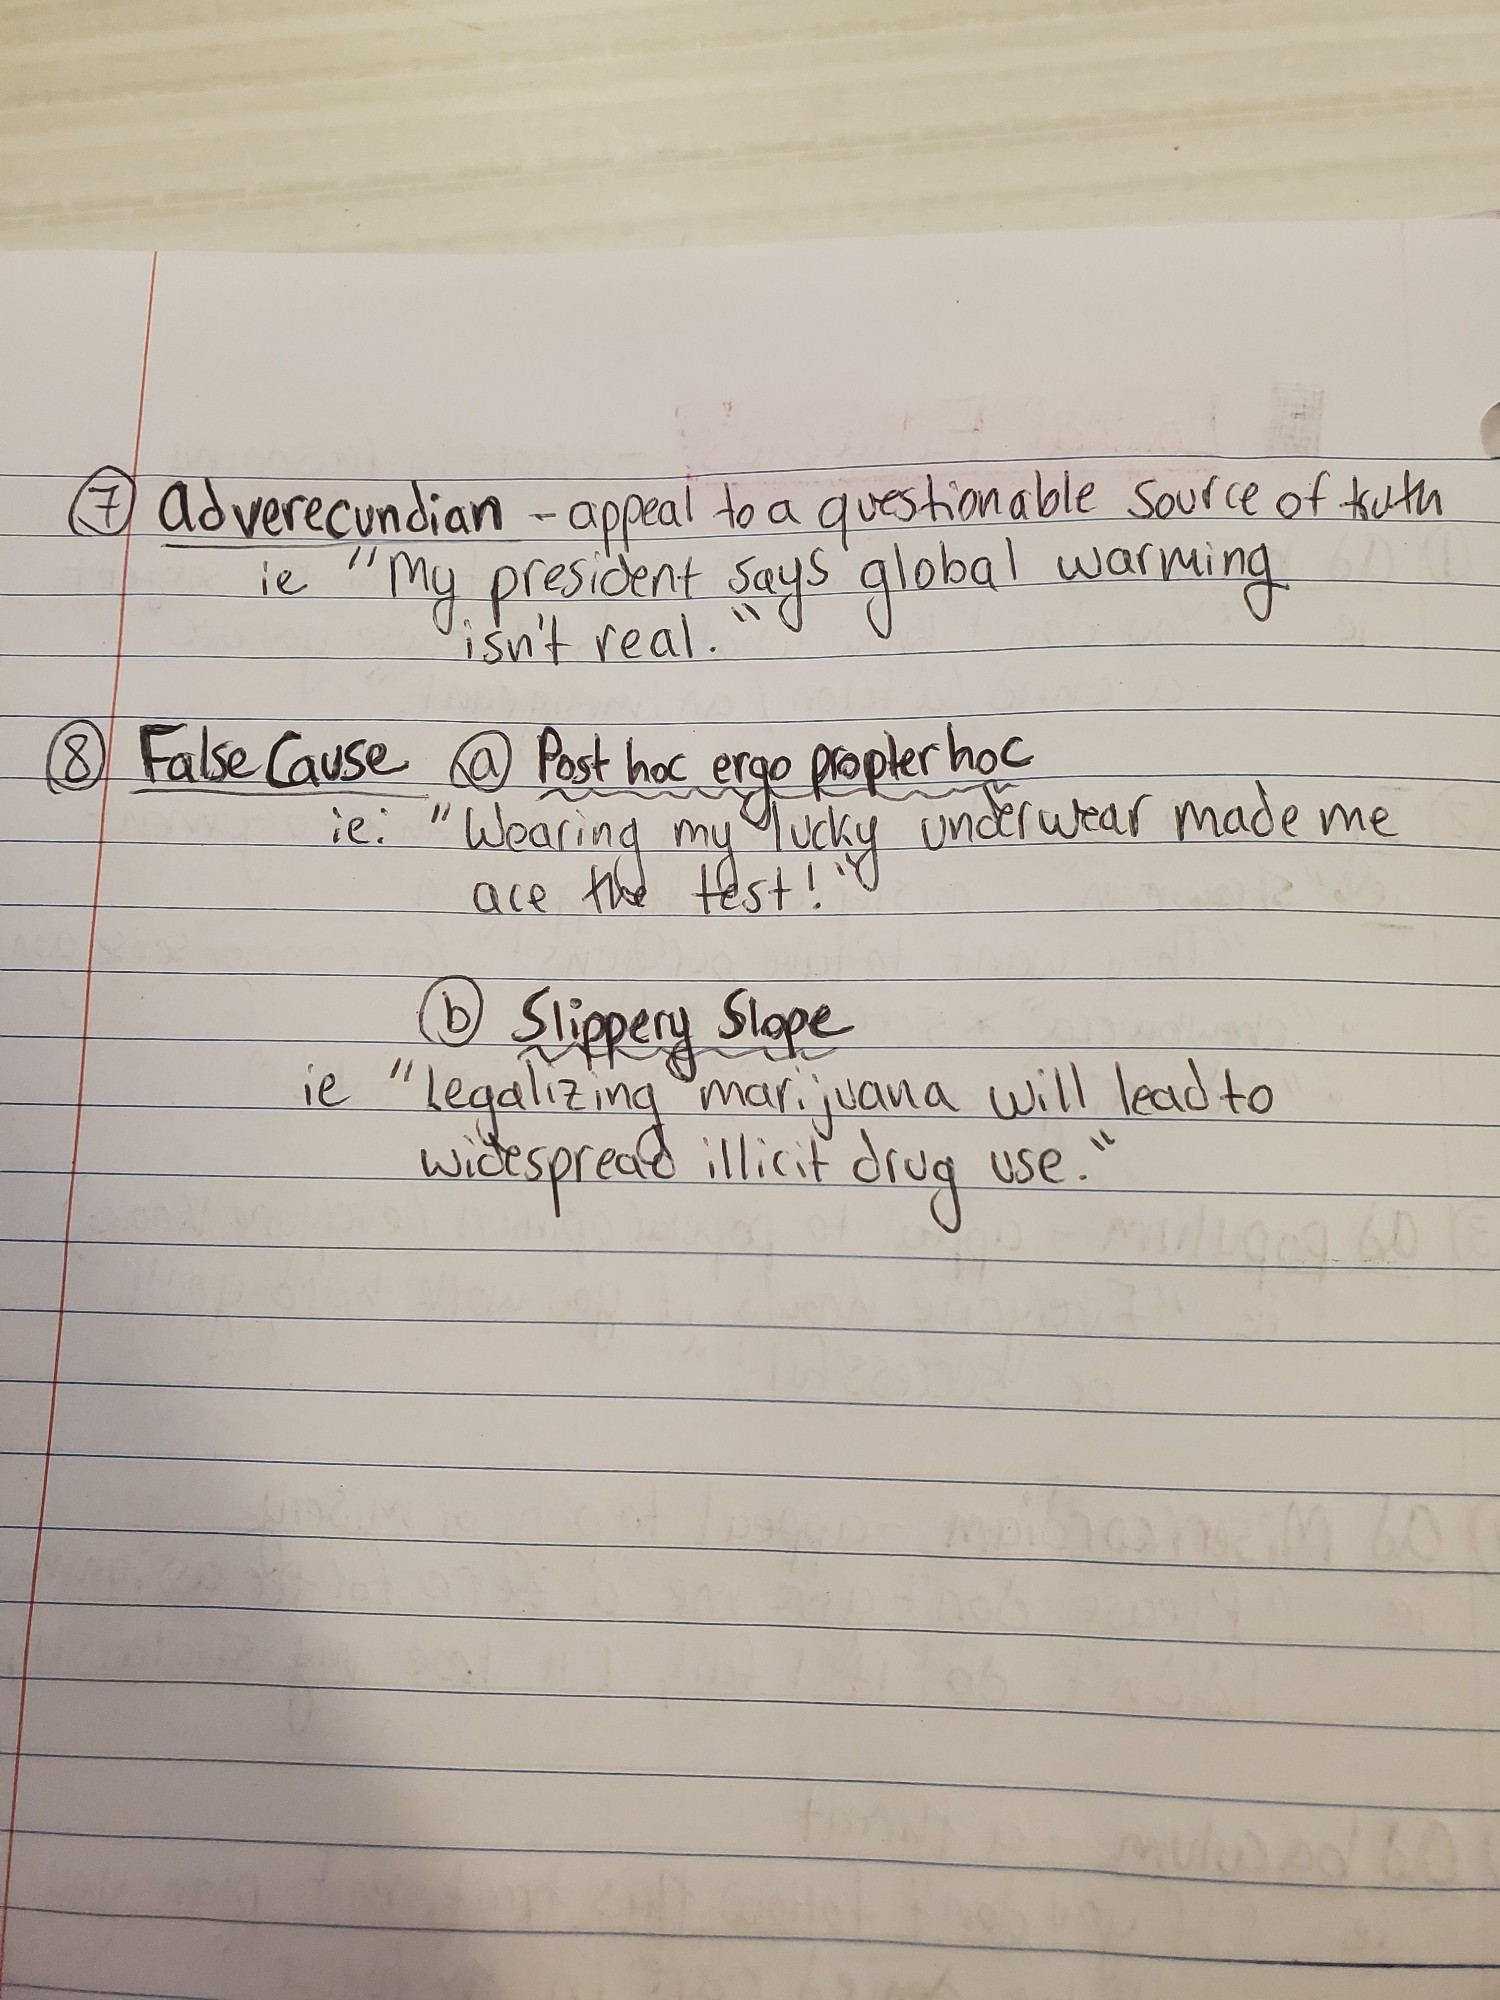 ⑦ adverecundian - appeal to a questionable source of truth
ie "My president says global warming
isn't real."
⑧ False Cause ⓐ Post hoc ergo propter hoc
ie: "Wearing my lucky underwear made me
ace the test!"
ⓑ Slippery Slope
ie "Legalizing marijuana will lead to
widespread illicit drug use."